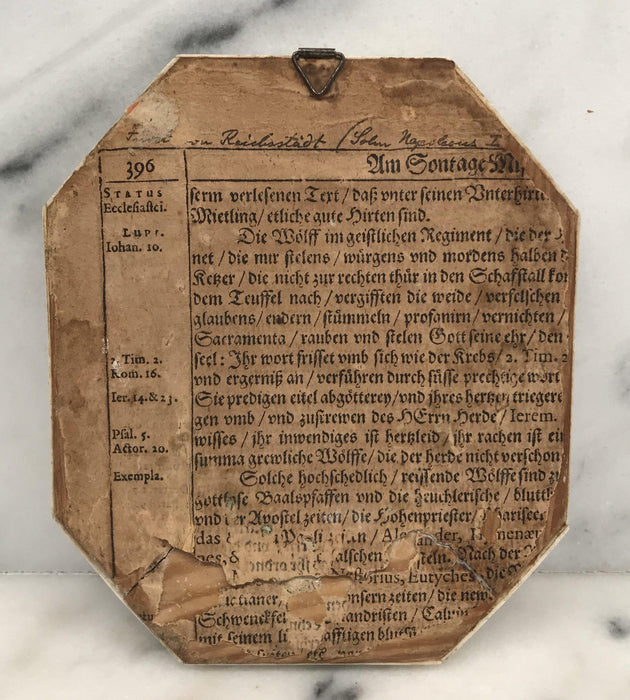 von Reichstädt (Sohn Napoleons I
396
Am Sontage Mi
STATUS
Ecclesiastici.
serm verlesenen Text / daß vnter seinen Vnterhirt
Mietling / etliche gute Hirten sind.
LUPI.
Iohan. 10.
Die Wölff im geistlichen Regiment / die der
net / die nur stelens / würgens vnd mordens halben
Ketzer / die nicht zur rechten thür in den Schafstall
dem Teuffel nach / vergifften die weide / verfelschen
glaubens / endern / stümmeln / profanirn / vernichten /
Sacramenta / rauben vnd stelen Gott seine ehr / den
2. Tim. 2.
seel : Ihr wort frisset vmb sich wie der Krebs / 2. Tim. 2
Rom. 16.
vnd ergerniß an / verführen durch süsse prechtige wort
Ier. 14. & 23.
Sie predigen eitel abgötterey / vnd jhres hertzen triegere
gen vmb / vnd zustrewen des HErrn Herde / Ierem.
Psal. 5.
wisses / jhr inwendiges ist hertzleid / jhr rachen ist ein
Actor. 20.
summa grewliche Wölffe / die der herde nicht verschon
Exempla.
Solche hochschedlich / reissende Wölffe sind
gottlose Baalspfaffen vnd die heuchlerische /
vnd Apostel zeiten / die Hohenpriester /
das
falschen
Nach der
Eutyches
vnsern zeiten / die new
Schwenckfel
mit seinem